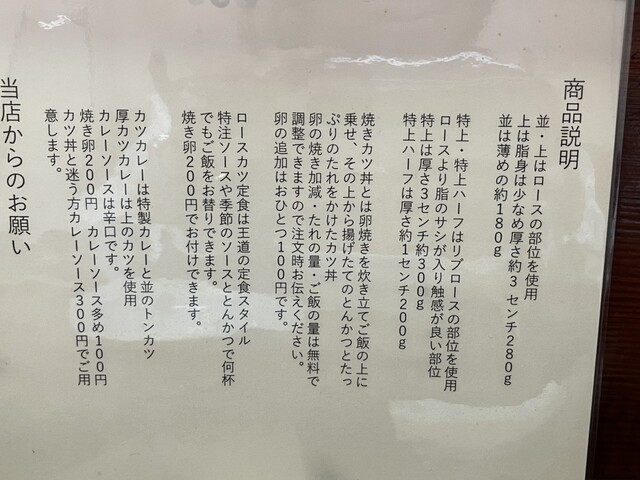 商品説明
並・上はロースの部位を使用
上は脂身は少なめ厚さ約3センチ280g
並は薄めの約180g
特上・特上ハーフはリブロースの部位を使用
ロースより脂のサシが入り触感が良い部位
特上は厚さ3センチ約300g
特上ハーフは厚さ約1センチ200g
焼きカツ丼とは卵焼きを炊き立てご飯の上に
乗せ、その上から揚げたてのとんかつとたっ
ぷりのたれをかけたカツ丼
卵の焼き加減・たれの量・ご飯の量は無料で
調整できますので注文時お伝えください。
卵の追加はおひとつ100円です。
ロースカツ定食は王道の定食スタイル
特注ソースや季節のソースととんかつで何杯
でもご飯をお替りできます。
焼き卵200円でお付けできます。
カツカレーは特製カレーと並のトンカツ
厚カツカレーは上のカツを使用
カレーソースは辛口です。
焼き卵200円 カレーソース多め100円
カツ丼と迷う方カレーソース300円でご用
意します。
当店からのお願い